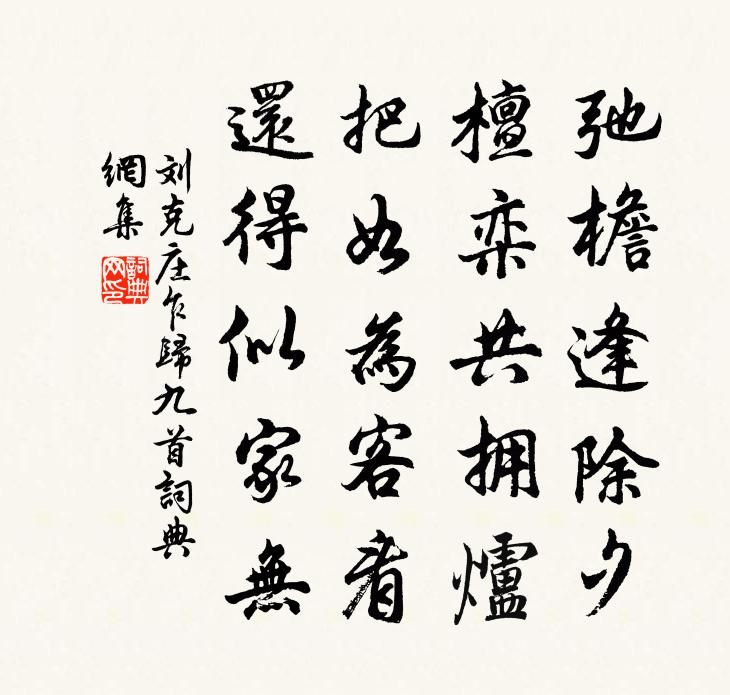 弛檐逢除夕
檀奕共拥爐
把如為客看
還得似家無
刘克庄乍歸九首詞典
網集
詞典網印